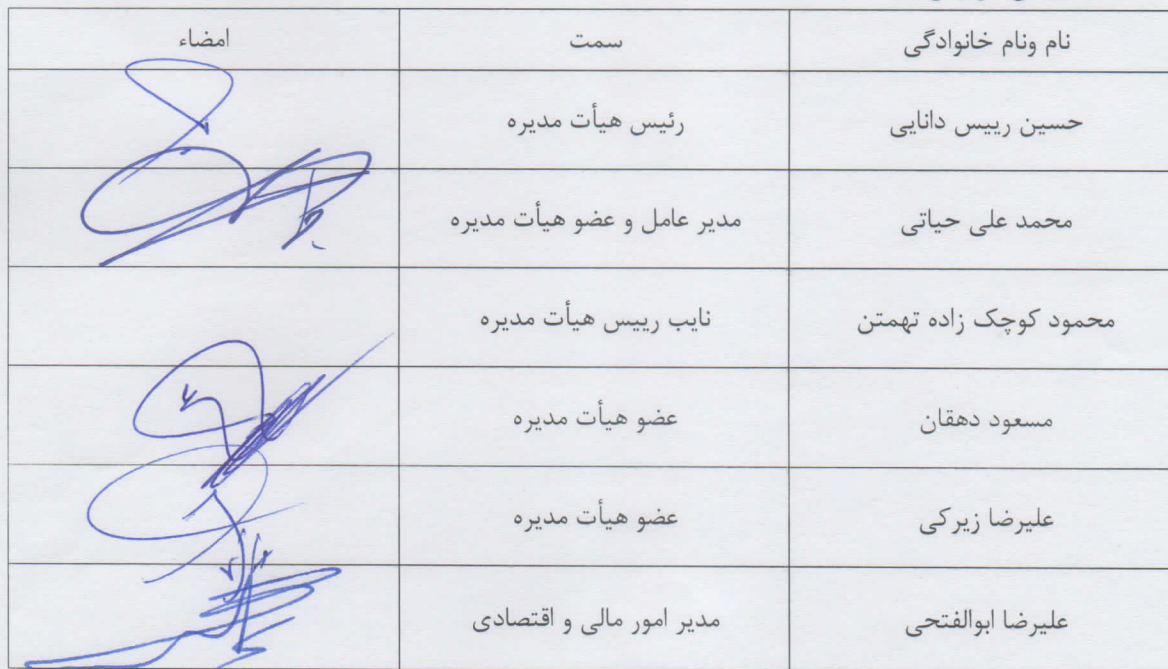 نام ونام خانوادگی سمت امضاء
حسین رییس دانایی رئیس هیأت مدیره
محمد علی حیاتی مدیر عامل و عضو هیأت مدیره
محمود کوچک زاده تهمتن نایب رییس هیأت مدیره
مسعود دهقان عضو هیأت مدیره
علیرضا زیرکی عضو هیأت مدیره
علیرضا ابوالفتحی مدیر امور مالی و اقتصادی